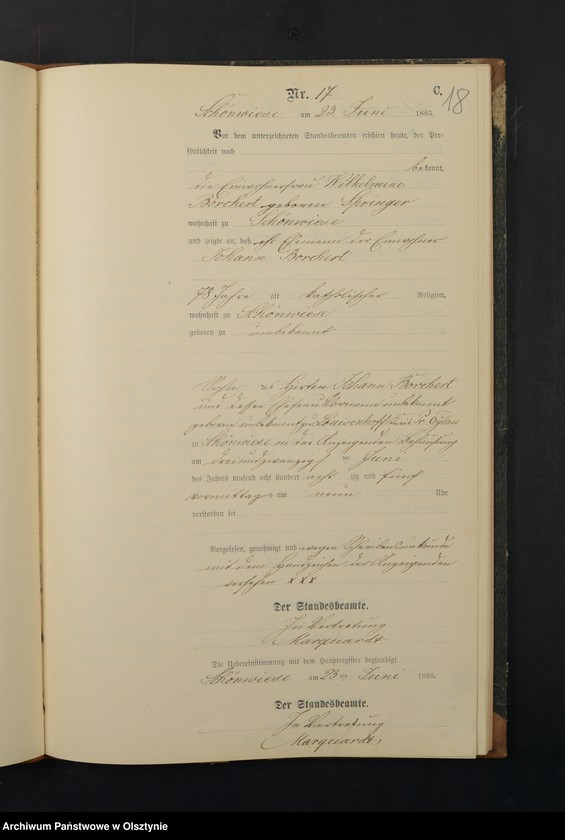 Nr. 17
C.
18
Schönwiese am 23 Juni 1885.
Vor dem unterzeichneten Standesbeamten erschien heute, der Per-
sönlichkeit nach
bekannt,
die Einwohnerfrau Wilhelmine
Borchert geborene Springer
wohnhaft zu Schönwiese
und zeigte an, daß ihr Ehemann der Einwohner
Johann Borchert
78 Jahre alt katholischer Religion,
wohnhaft zu Schönwiese
geboren zu unbekannt
Sohn des Hirten Johann Borchert
und dessen Ehefrau Vorname unbekannt
geborne unbekannt zu Louisenhoff Pr. Eylau
zu Schönwiese in der Anzeigenden Behausung
am dreiundzwanzig ten Juni
des Jahres tausend acht hundert acht zig und fünf
vormittags um neun Uhr
verstorben sei
Vorgelesen, genehmigt und wegen Schreibensunkunde
mit dem Handzeichen der Anzeigenden
versehen xxx
Der Standesbeamte.
In Vertretung
Marquardt
Die Uebereinstimmung mit dem Hauptregister beglaubigt.
Schönwiese am 23 ten Juni 1885.
Der Standesbeamte.
In Vertretung
Marquardt
Archiwum Państwowe w Olsztynie